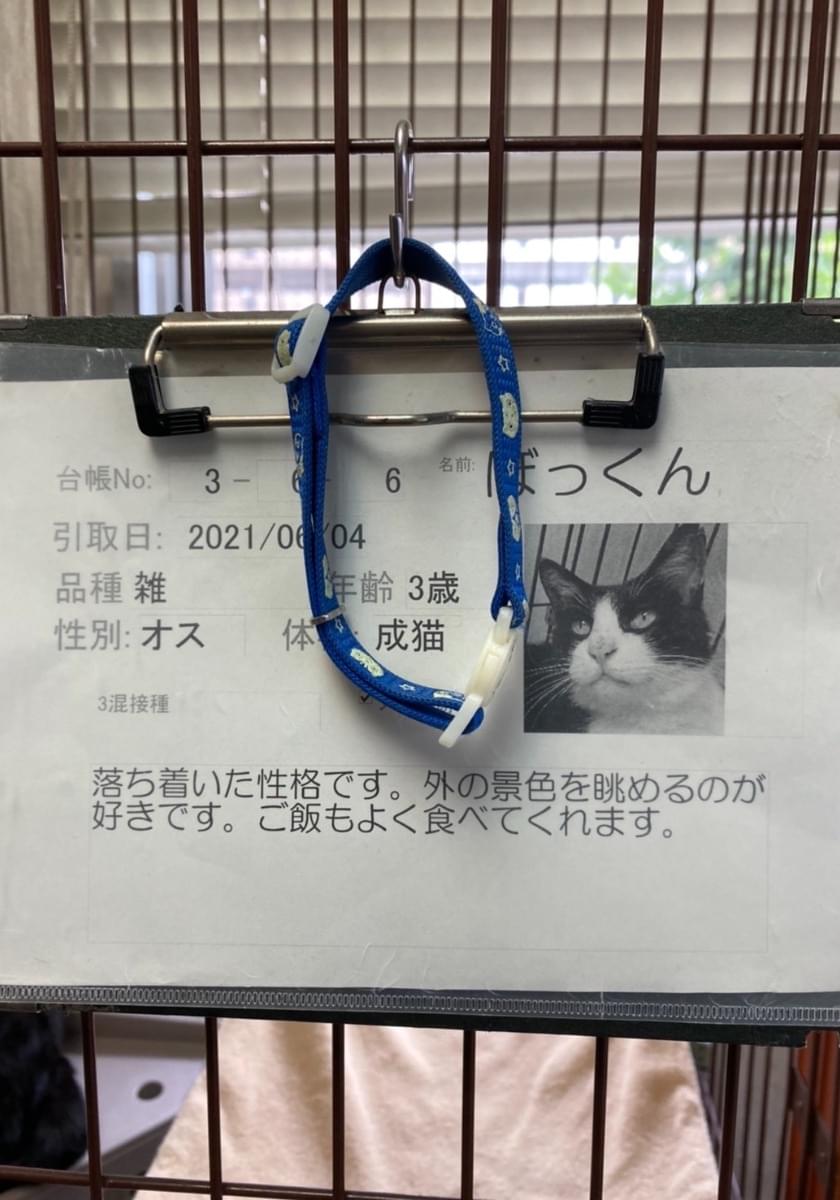 台帳No: 3 - 6 - 6 名前: ぼっくん
引取日: 2021/06/04
品種 雑 年齢 3歳
性別: オス 体 : 成猫
3混接種
落ち着いた性格です。外の景色を眺めるのが
好きです。ご飯もよく食べてくれます。